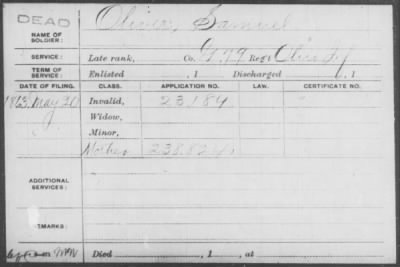 DEAD
Oliver, Samuel
NAME OF SOLDIER:
SERVICE: Late rank, Co. G 99 Reg't Ohio Inf
TERM OF SERVICE: Enlisted , 1 Discharged , 1
DATE OF FILING. CLASS. APPLICATION NO. LAW. CERTIFICATE NO.
1863 May 20 Invalid, 23184
Widow,
Minor,
Mother 238,824
ADDITIONAL SERVICES:
REMARKS:
Died , 1 , at